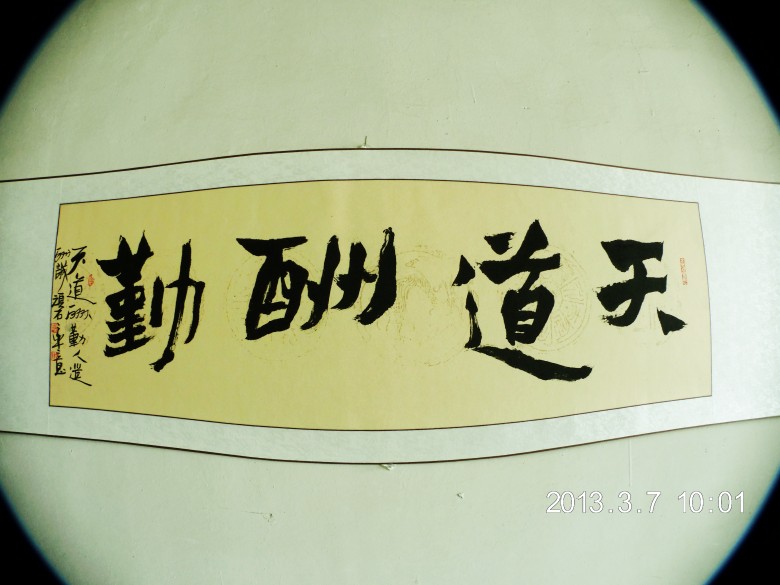 天道酬勤
天道酬勤人道
酬誠
2013.3.7 10:01